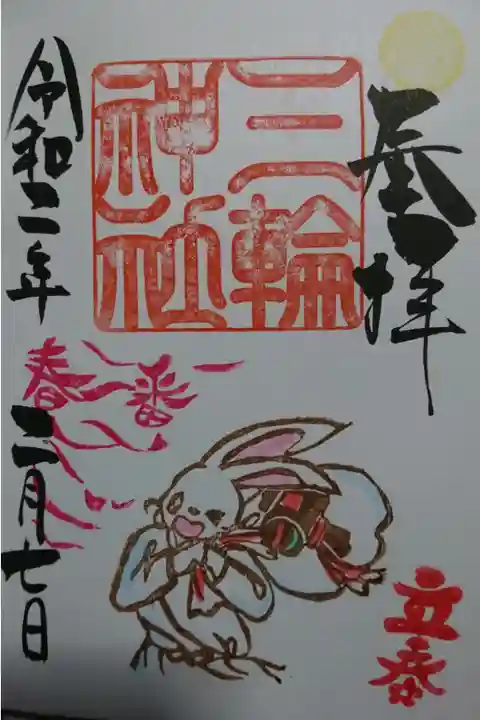 拝
三輪
神社
春一番
立春
令和二年 二月七日